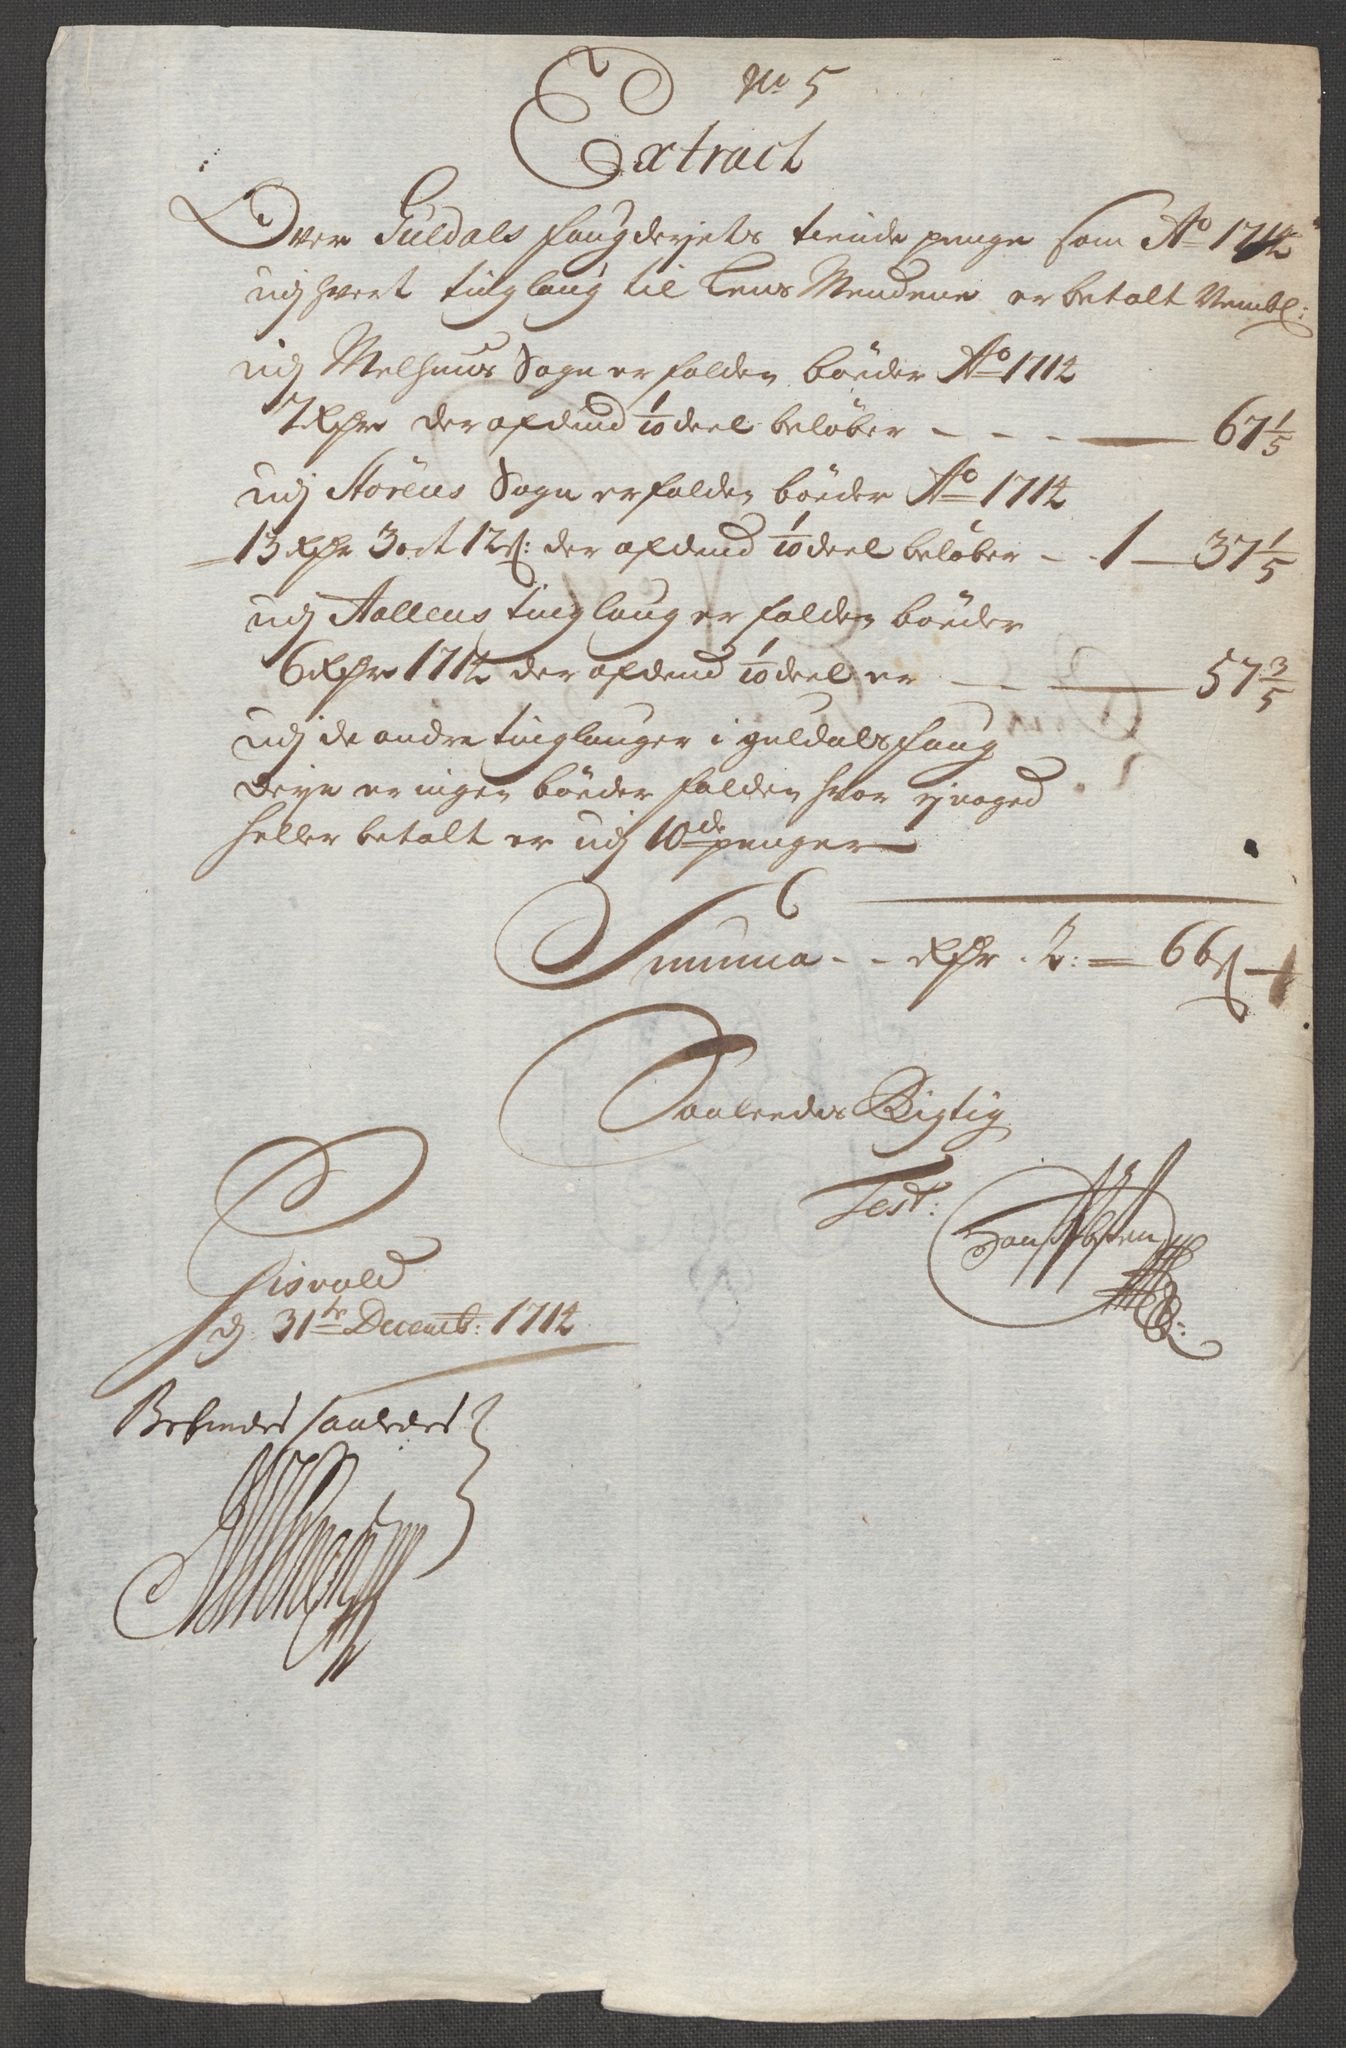 No 5
Extract
Over Guldals faugderjets tiende penge som Ao 1712
udj hvert tinglaug til Lens Mendene er betalt Nembl:
udj Melhuus Sogn er falden bøeder Ao 1712
7 Rdr der af dend 1/10 deel beløber - - - 67 1/5
udj Störens Sogn er falden bøeder Ao 1712
13 Rdr 3 ort 12 s: der af dend 1/10 deel beløber - - 1 - 37 1/5
udj Aallens tinglaug er falden bøeder
6 Rdr 1712 der af dend 1/10 deel er - - 57 3/5
udj de andre tinglauger i guldals faug
derje er ingen bøeder falden hvor ej noged
heller betalt er udj 10de penger
Summa - - Rdr . 2: = 66 s
Saaledes Rigtig
Test:
d: 31te Decemb: 1712
Befindes saaledes